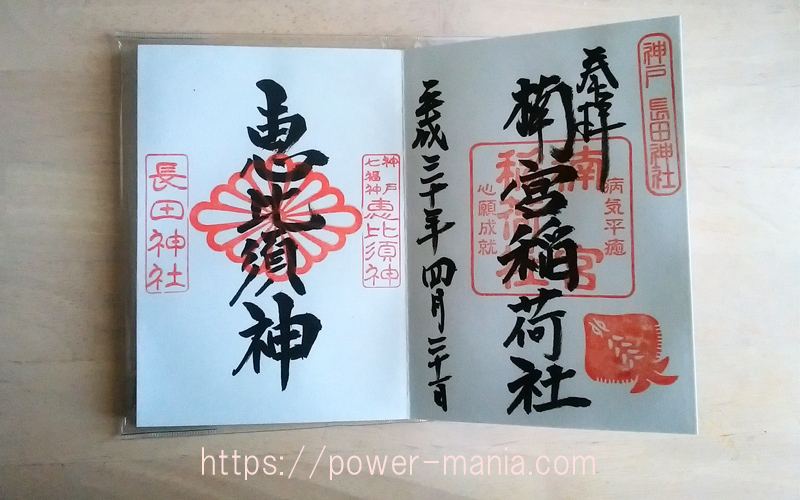 神戸 長田神社
奉拝
病気平癒
楠宮
稲荷社
心願成就
楠宮稲荷社
平成三十年四月二十一日
神戸
七福神
恵比須神
恵比須神
長田神社
https://power-mania.com